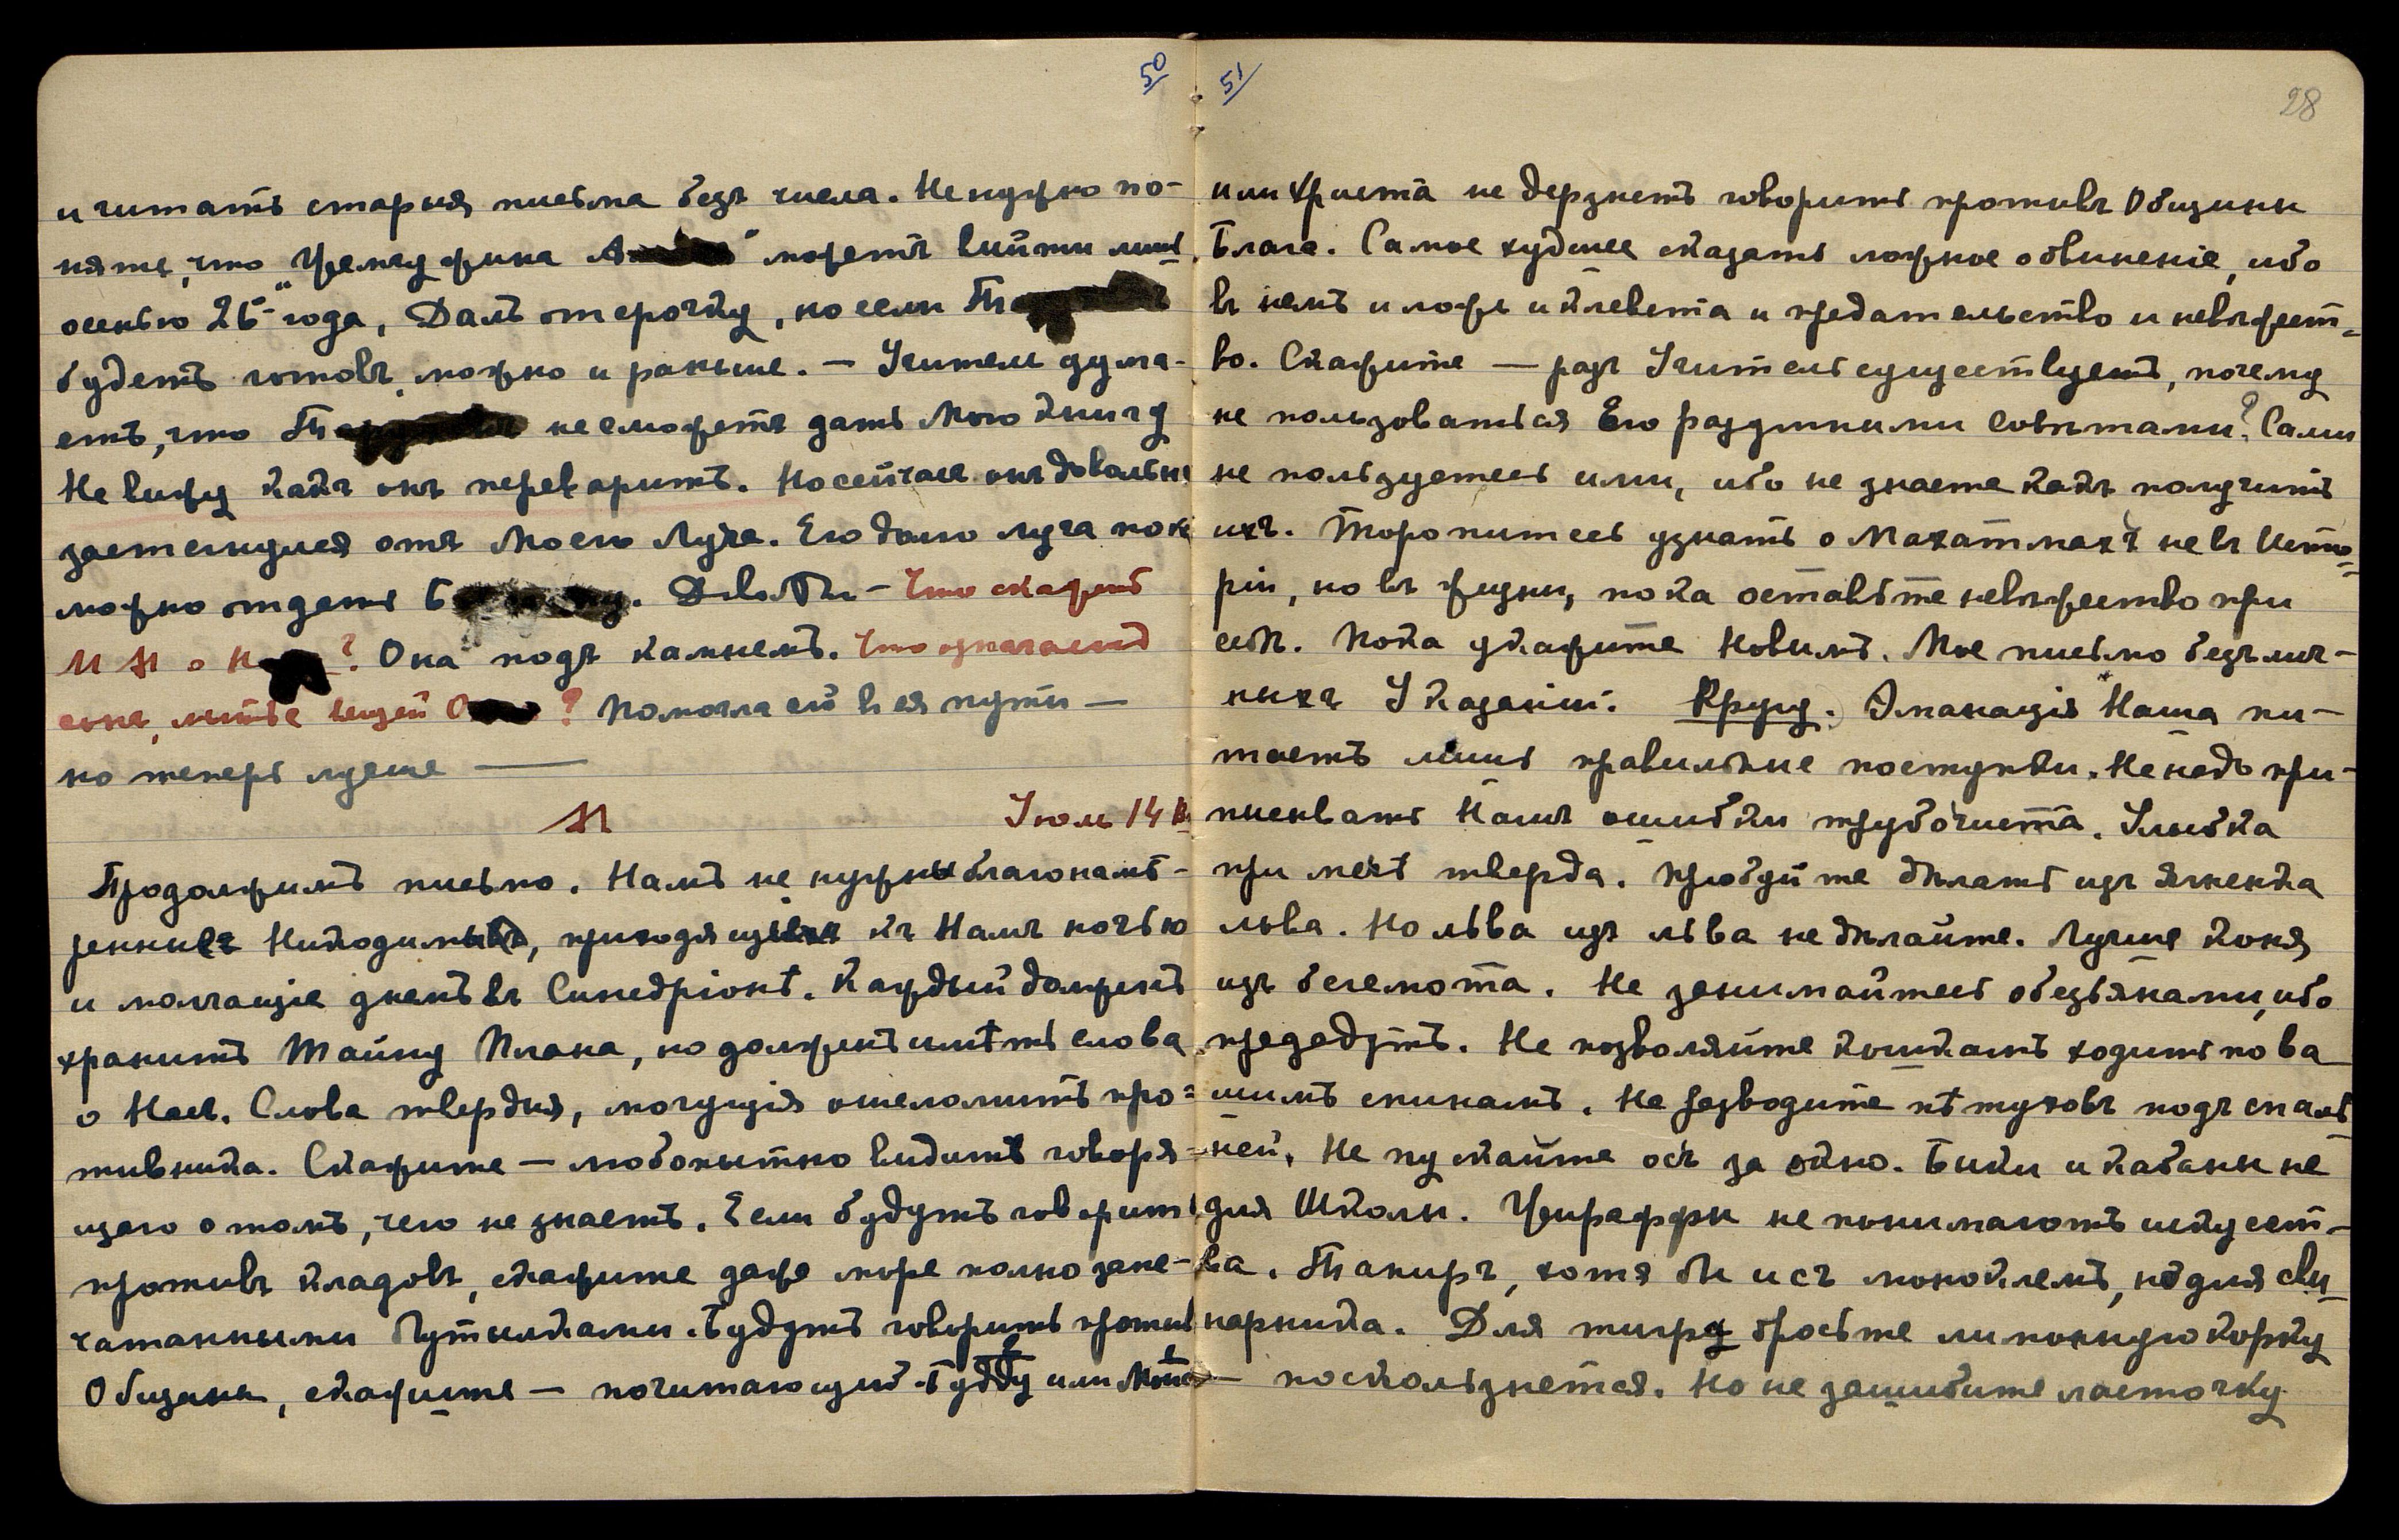 50
и читать старыя письма безъ числа. Не нужно по-
нять, что "Чемежрина А может выйти лишь
осенью 25 года, Дамъ отсрочку, но если Т
будетъ готовъ можно и раньше. — Учитель дума-
етъ, что Т не сможетъ дать Мою книгу
Не вижу какъ онъ переваритъ. Но сейчасъ онъ довольно
застегнулся отъ Моего Луча. Его долю луча пока
можно отдать Б. Довольно — Что скажетъ
М о Н? Она подъ камнемъ. Что означаетъ
сонъ, мытье вещей О? Помогла ей в ея пути —
но теперь лучше —
М Іюль 14
Продолжимъ письмо. Намъ не нужны благонамѣ-
ренные Никодимы, приходящіе къ Намъ ночью
и молчащіе днемъ въ Синедріонѣ. Каждый долженъ
хранить Тайну Плана, но долженъ имѣть слова
о Насъ. Слова твердыя, могущія ошеломить про-
тивника. Скажите — любопытно видѣть говоря-
щаго о томъ, чего не знаетъ. Если будутъ говорить
противъ кладовъ, скажите даже море полно запе-
чатанными бутылками. Будутъ говорить противъ
Общины, скажите — почитающій Будду или Моисея
51
28
или Христа не дерзнетъ говорить противъ Общины
Блага. Самое худшее сказать ложное обвиненіе, ибо
въ немъ и ложь и клевета и предательство и невѣжест-
во. Скажите — разъ Учитель существуетъ, почему
не пользоваться Его разумными совѣтами? Сами
не пользуетесь ими, ибо не знаете какъ получить
ихъ. Торопитесь узнать о Махатмахъ не въ Исто-
ріи, но въ жизни, пока оставьте невѣжество при
себѣ. Пока укажите Новымъ. Мое письмо безъ лич-
ныхъ Указаній. Кругу. Эманація Наша пи-
таетъ лишь правильные поступки. Не надо при-
писывать Намъ ошибки трубочиста. Улыбка
при мехѣ тверда. Пробуйте дѣлать изъ ягненка
льва. Но льва изъ льва не дѣлайте. Лучше коня
изъ бегемота. Не занимайтесь обезьянами, ибо
предадутъ. Не позволяйте кошкамъ ходить по ва
шимъ спинамъ. Не разводите пѣтуховъ подъ спаль
ней. Не пускайте осъ за окно. Быки и кабаны не
для Школы. Жираффы не понимаютъ искусст-
ва. Тапиръ, хотя бы и съ моноклемъ, но для сви
нарника. Для тигра бросьте лимонную корку
— поскользнется. Но не зашибите ласточку